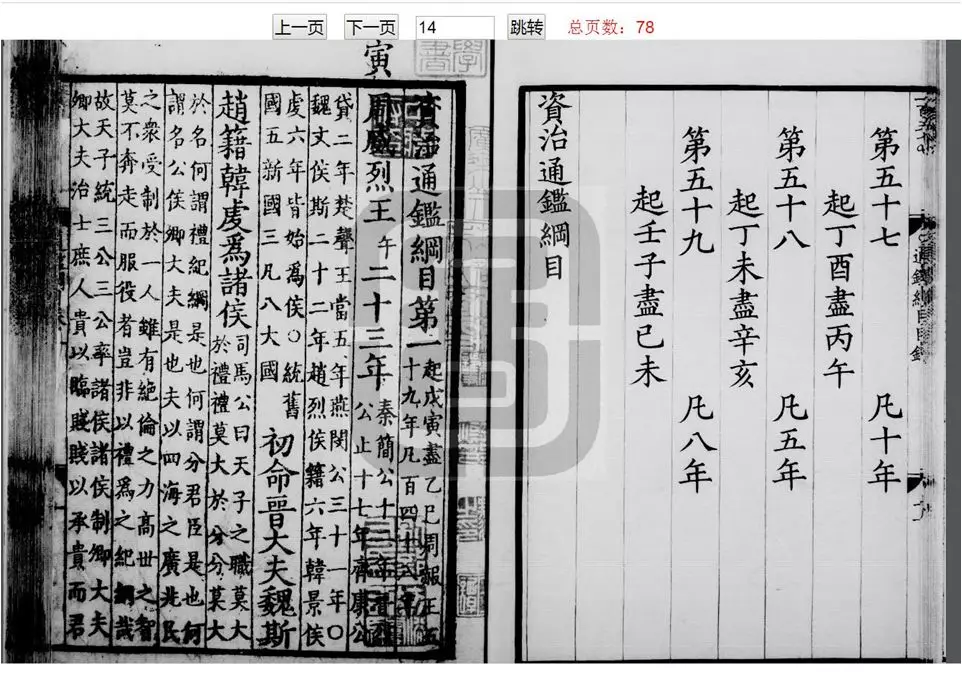 上一页 下一页 14 跳转 总页数：78
通鑑綱目目錄
第五十七 凡十年
起丁酉盡丙午
第五十八 凡五年
起丁未盡辛亥
第五十九 凡八年
起壬子盡已未
資治通鑑綱目
寅
資治通鑑綱目第一 起戊寅盡乙巳周赧王五
十九年凡百四十八年
周威烈王 午 二十三年 秦簡公十二年晉
公止十七年齊康公
貸二年楚聲王當五年燕閔公三十一年〇
魏文侯斯二十二年趙烈侯籍六年韓景侯
虔六年皆始爲侯〇統舊
國五新國三凡八大國 初命晉大夫魏斯
趙籍韓虔爲諸侯 司馬公曰天子之職莫大
於禮禮莫大於分分莫大
於名何謂禮紀綱是也何謂分君臣是也何
謂名公侯卿大夫是也夫以四海之廣兆民
之衆受制於一人雖有絶倫之力高世之智
莫不奔走而服役者豈非以禮爲之紀綱哉
故天子統三公三公率諸侯諸侯制卿大夫
卿大夫治士庶人貴以臨賤賤以承貴而君